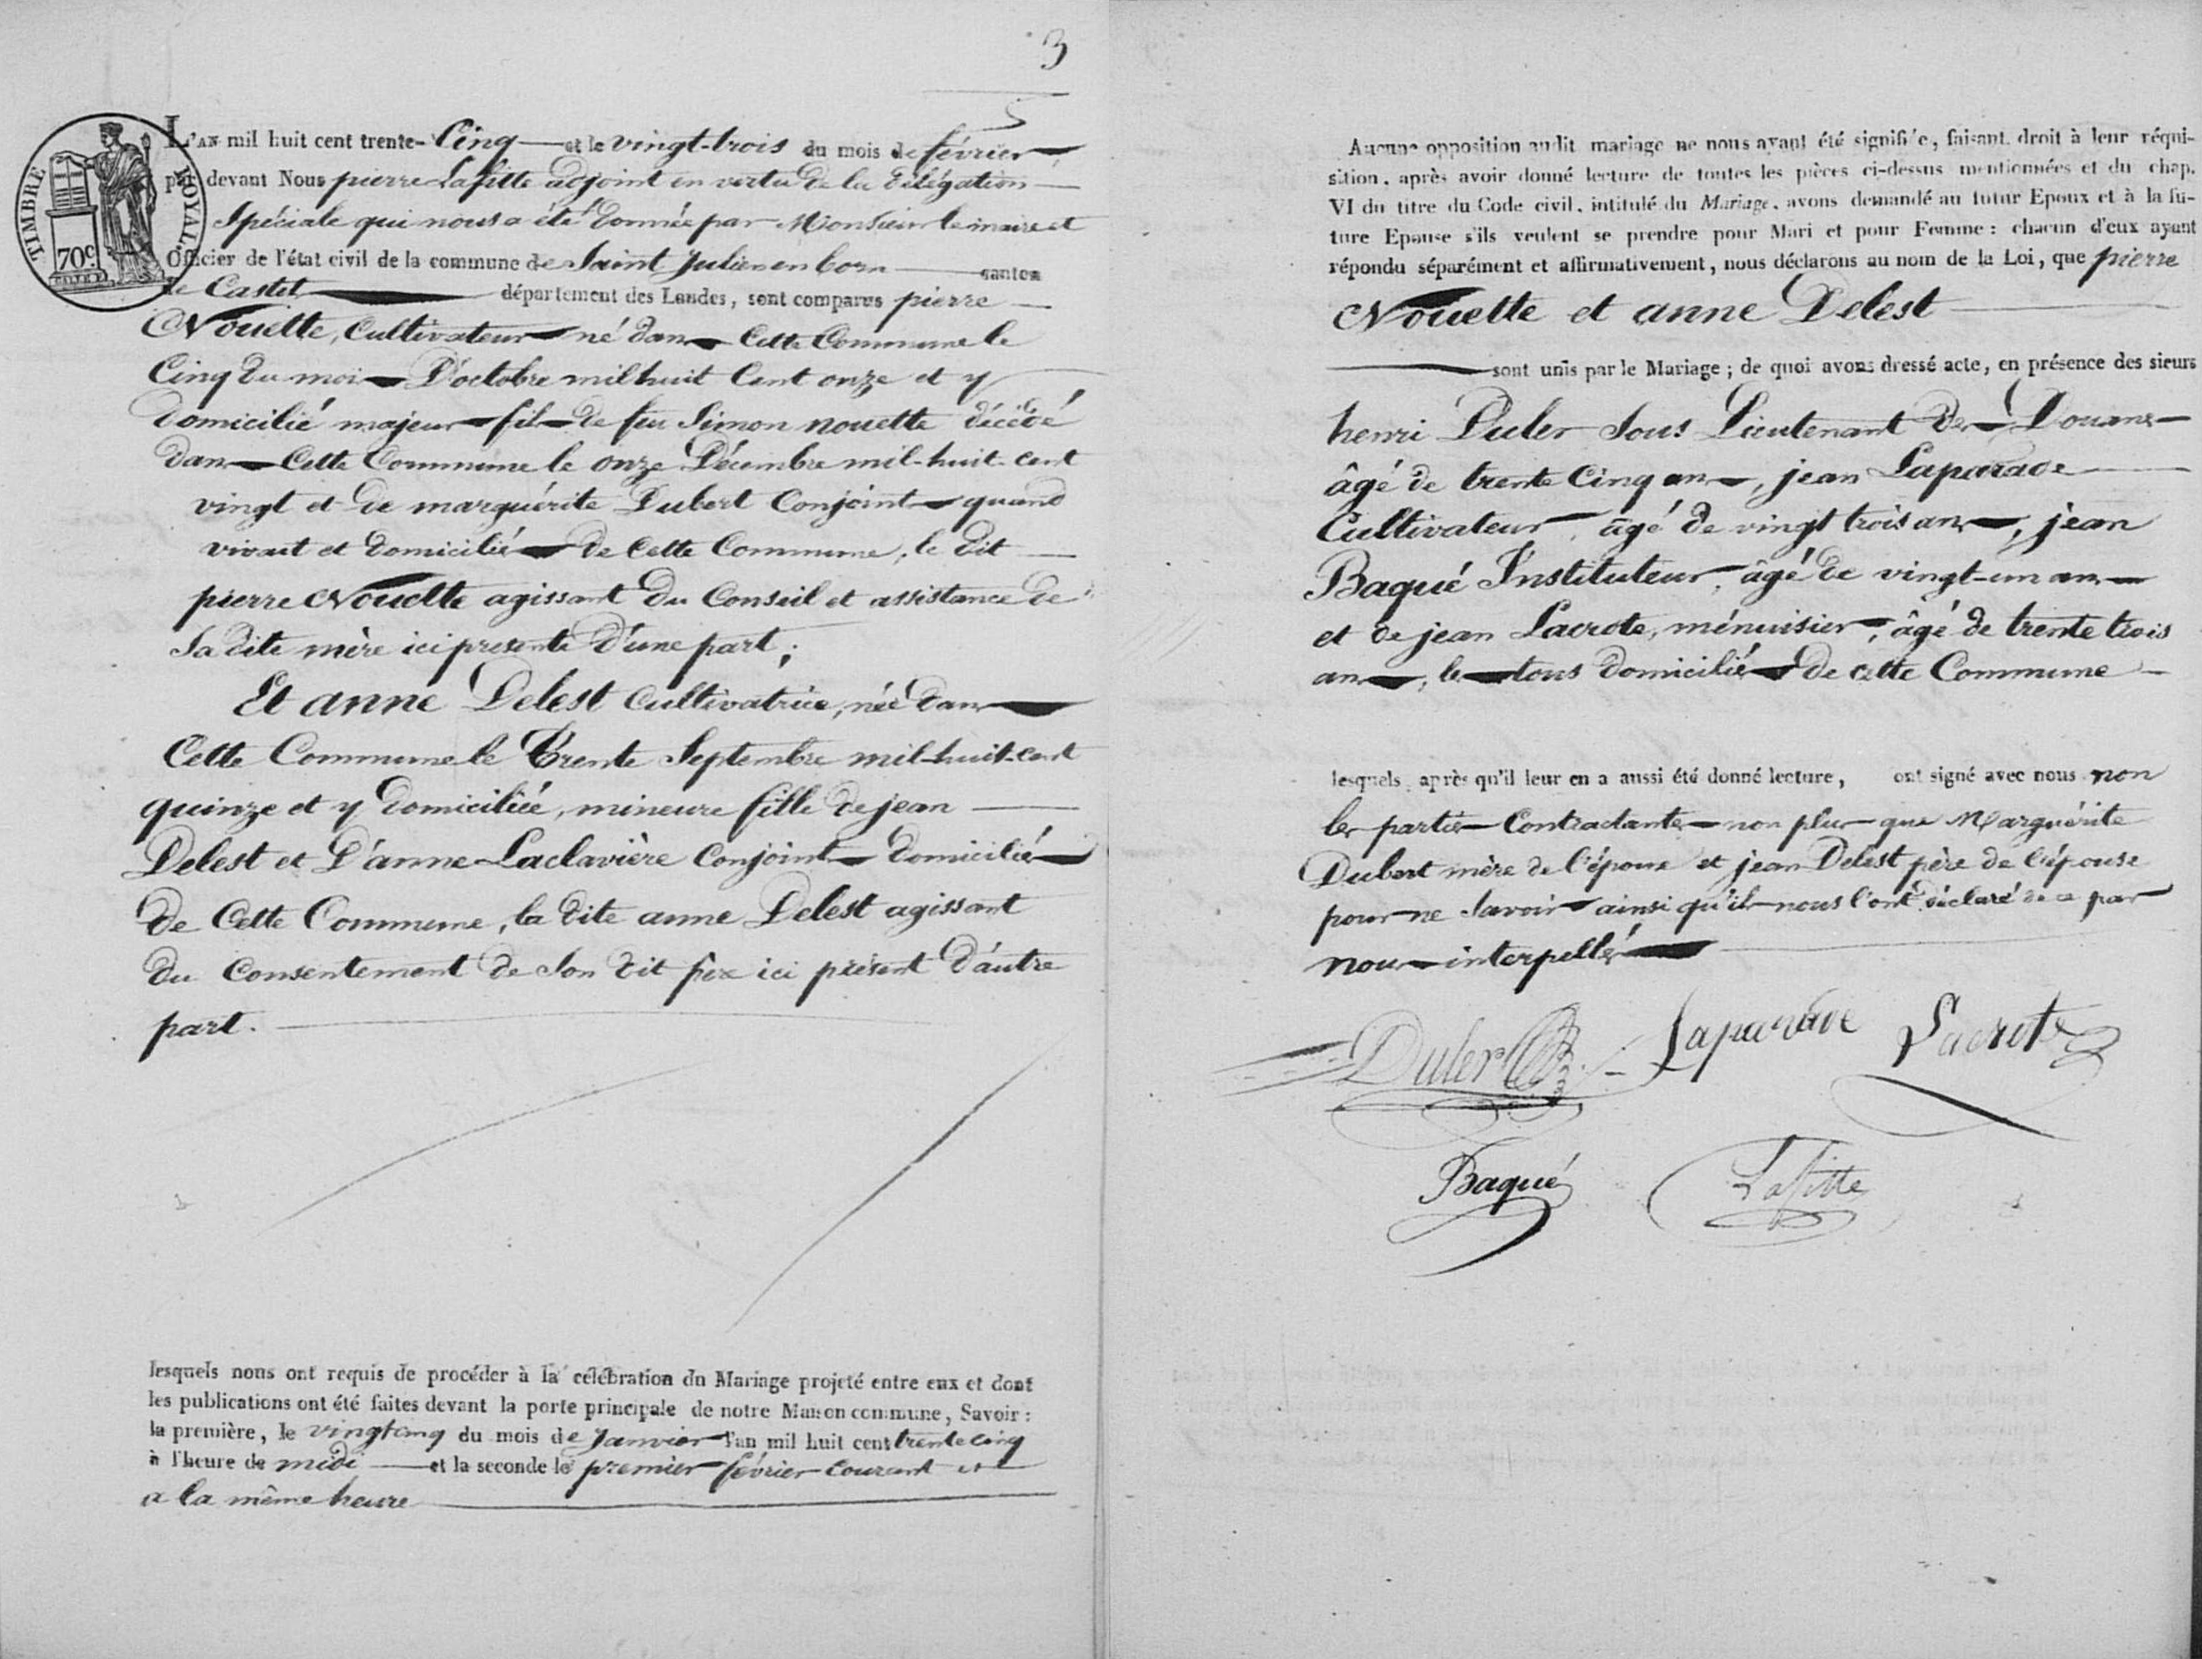 3
5
TIMBRE ROYAL.
70c.
L'AN mil huit cent trente-Cinq et le vingt-trois du mois de février,
par devant Nous pierre Lafitte adjoint en vertu de la délégation
Spéciale qui nous a été donnée par Monsieur le maire et
Officier de l'état civil de la commune de Saint Julien en born canton
de Castet département des Landes, sont comparus pierre
Nouette, Cultivateur né dans Cette Commune le
Cinq du mois D'octobre mil huit Cent onze et y
domicilié majeur fils de feu Simon nouette décédé
dans Cette Commune le onze Décembre mil-huit-cent
vingt et de marguérite Dubert Conjoints quand
vivait et domiciliés de Cette Commune, le dit
pierre Nouette agissant Du Conseil et assistance de
Sa dite mère ici presente D'une part;
Et anne Delest Cultivatrice, née dans
Cette Commune le Trente Septembre mil-huit-cent
quinze et y domiciliée, mineure fille de jean
Delest et D'anne Laclavière Conjoints domiciliés
De Cette Commune, la dite anne Delest agissant
du Consentement de Son dit père ici présent D'autre
part.
lesquels nous ont requis de procéder à la célébration du Mariage projeté entre eux et dont
les publications ont été faites devant la porte principale de notre Maison commune, Savoir :
la première, le vingt cinq du mois de Janvier l'an mil huit cent trente cinq
à l'heure de midi et la seconde le premier février courant et
a la même heure
Aucune opposition audit mariage ne nous ayant été signifiée, faisant droit à leur réqui-
sition, après avoir donné lecture de toutes les pièces ci-dessus mentionnées et du chap.
VI du titre du Code civil, intitulé du Mariage, avons demandé au futur Epoux et à la fu-
ture Epouse s'ils veulent se prendre pour Mari et pour Femme : chacun d'eux ayant
répondu séparément et affirmativement, nous déclarons au nom de la Loi, que pierre
Nouette et anne Delest
sont unis par le Mariage ; de quoi avons dressé acte, en présence des sieurs
henri Duler Sous Lieutenant des Douanes
âgé de trente Cinq ans, jean Laparade
Cultivateur, âgé de vingt trois ans, jean
Baqué Instituteur, âgé de vingt-un ans
et de jean Lacrote, ménuisier, âgé de trente trois
ans, les tous domiciliés de cette Commune
lesquels, après qu'il leur en a aussi été donné lecture, ont signé avec nous non
les parties Contractantes non plus que Marguérite
Dubert mère de l'époux et jean Delest père de l'épouse
pour ne Savoir ainsi qu'ils nous l'ont déclaré de ce par
nous interpellés
Duler Laparade Lacrote
Baqué Lafitte